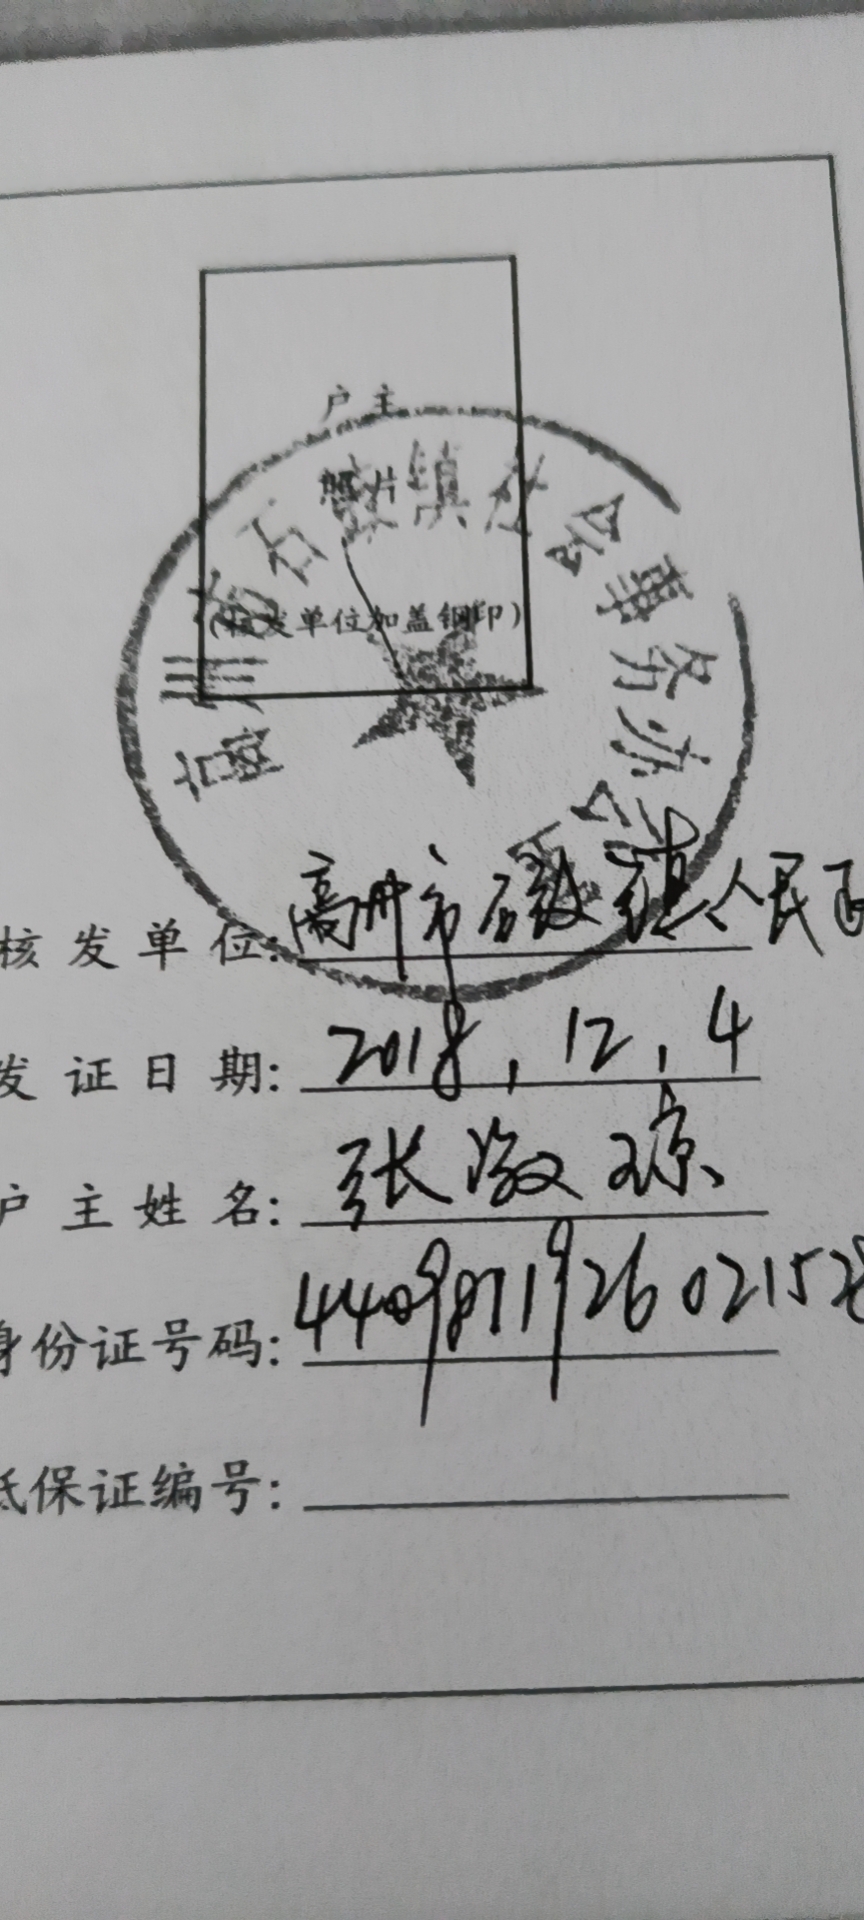 户主
照片
(核发单位加盖钢印)
高州市石鼓镇社会事务办公
核发单位: 高州市石鼓镇人民政
发证日期: 2018.12.4
户主姓名: 张淑琼
身份证号码: 44098119260215
低保证编号: